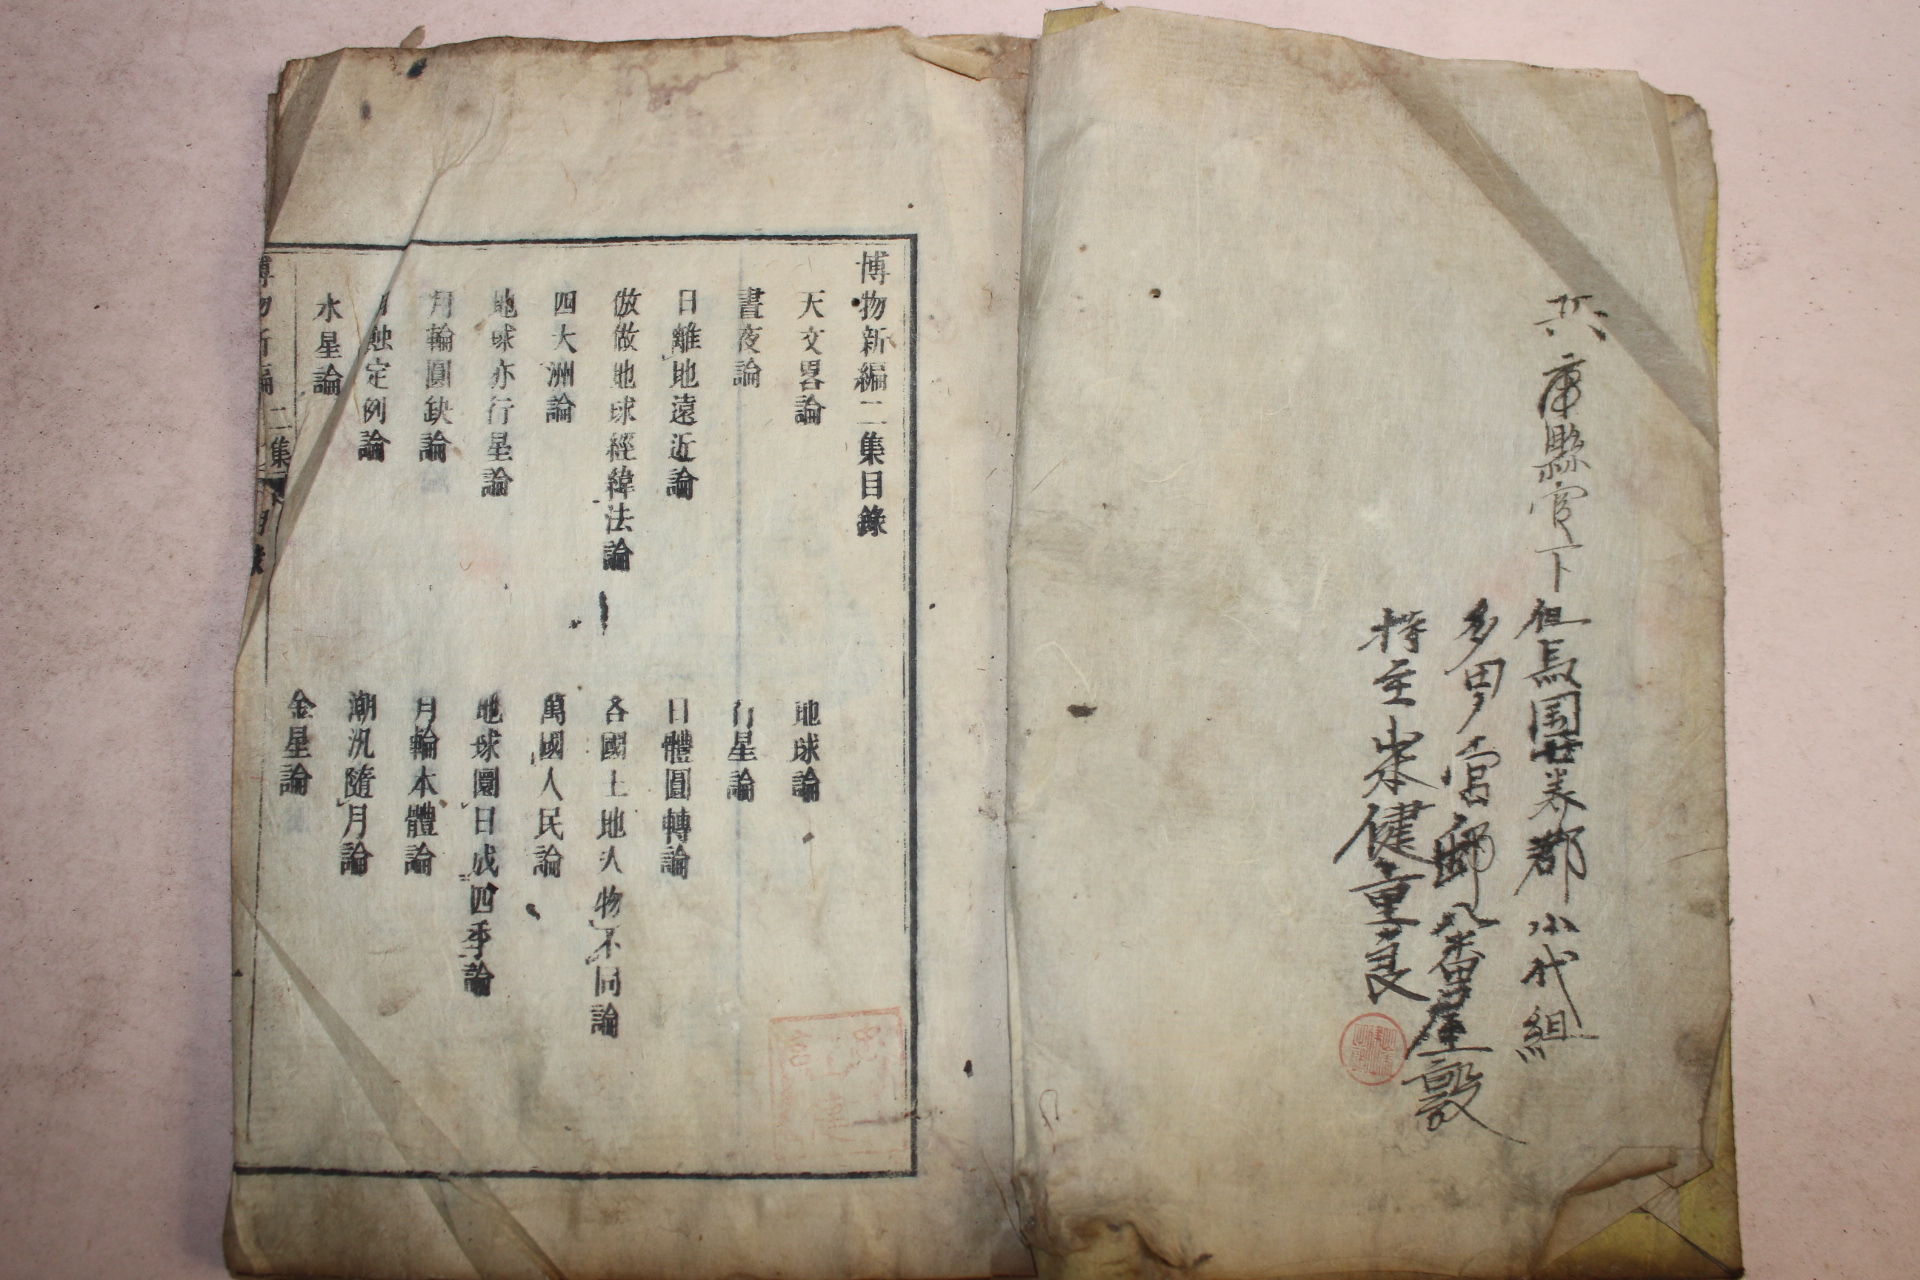 兵庫縣官下但馬国七美郡小代組
多田ノ宮邨八番屋敷
持主 米健重良
博物新編二集目錄
天文畧論 地球論
晝夜論 行星論
日離地遠近論 日體圓轉論
倣做地球經緯法論 各國土地人物不同論
四大洲論 萬國人民論
地球亦行星論 地球圜日成四季論
月輪圓缺論 月輪本體論
月蝕定例論 潮汛隨月論
水星論 金星論
博物新編 二集 目錄